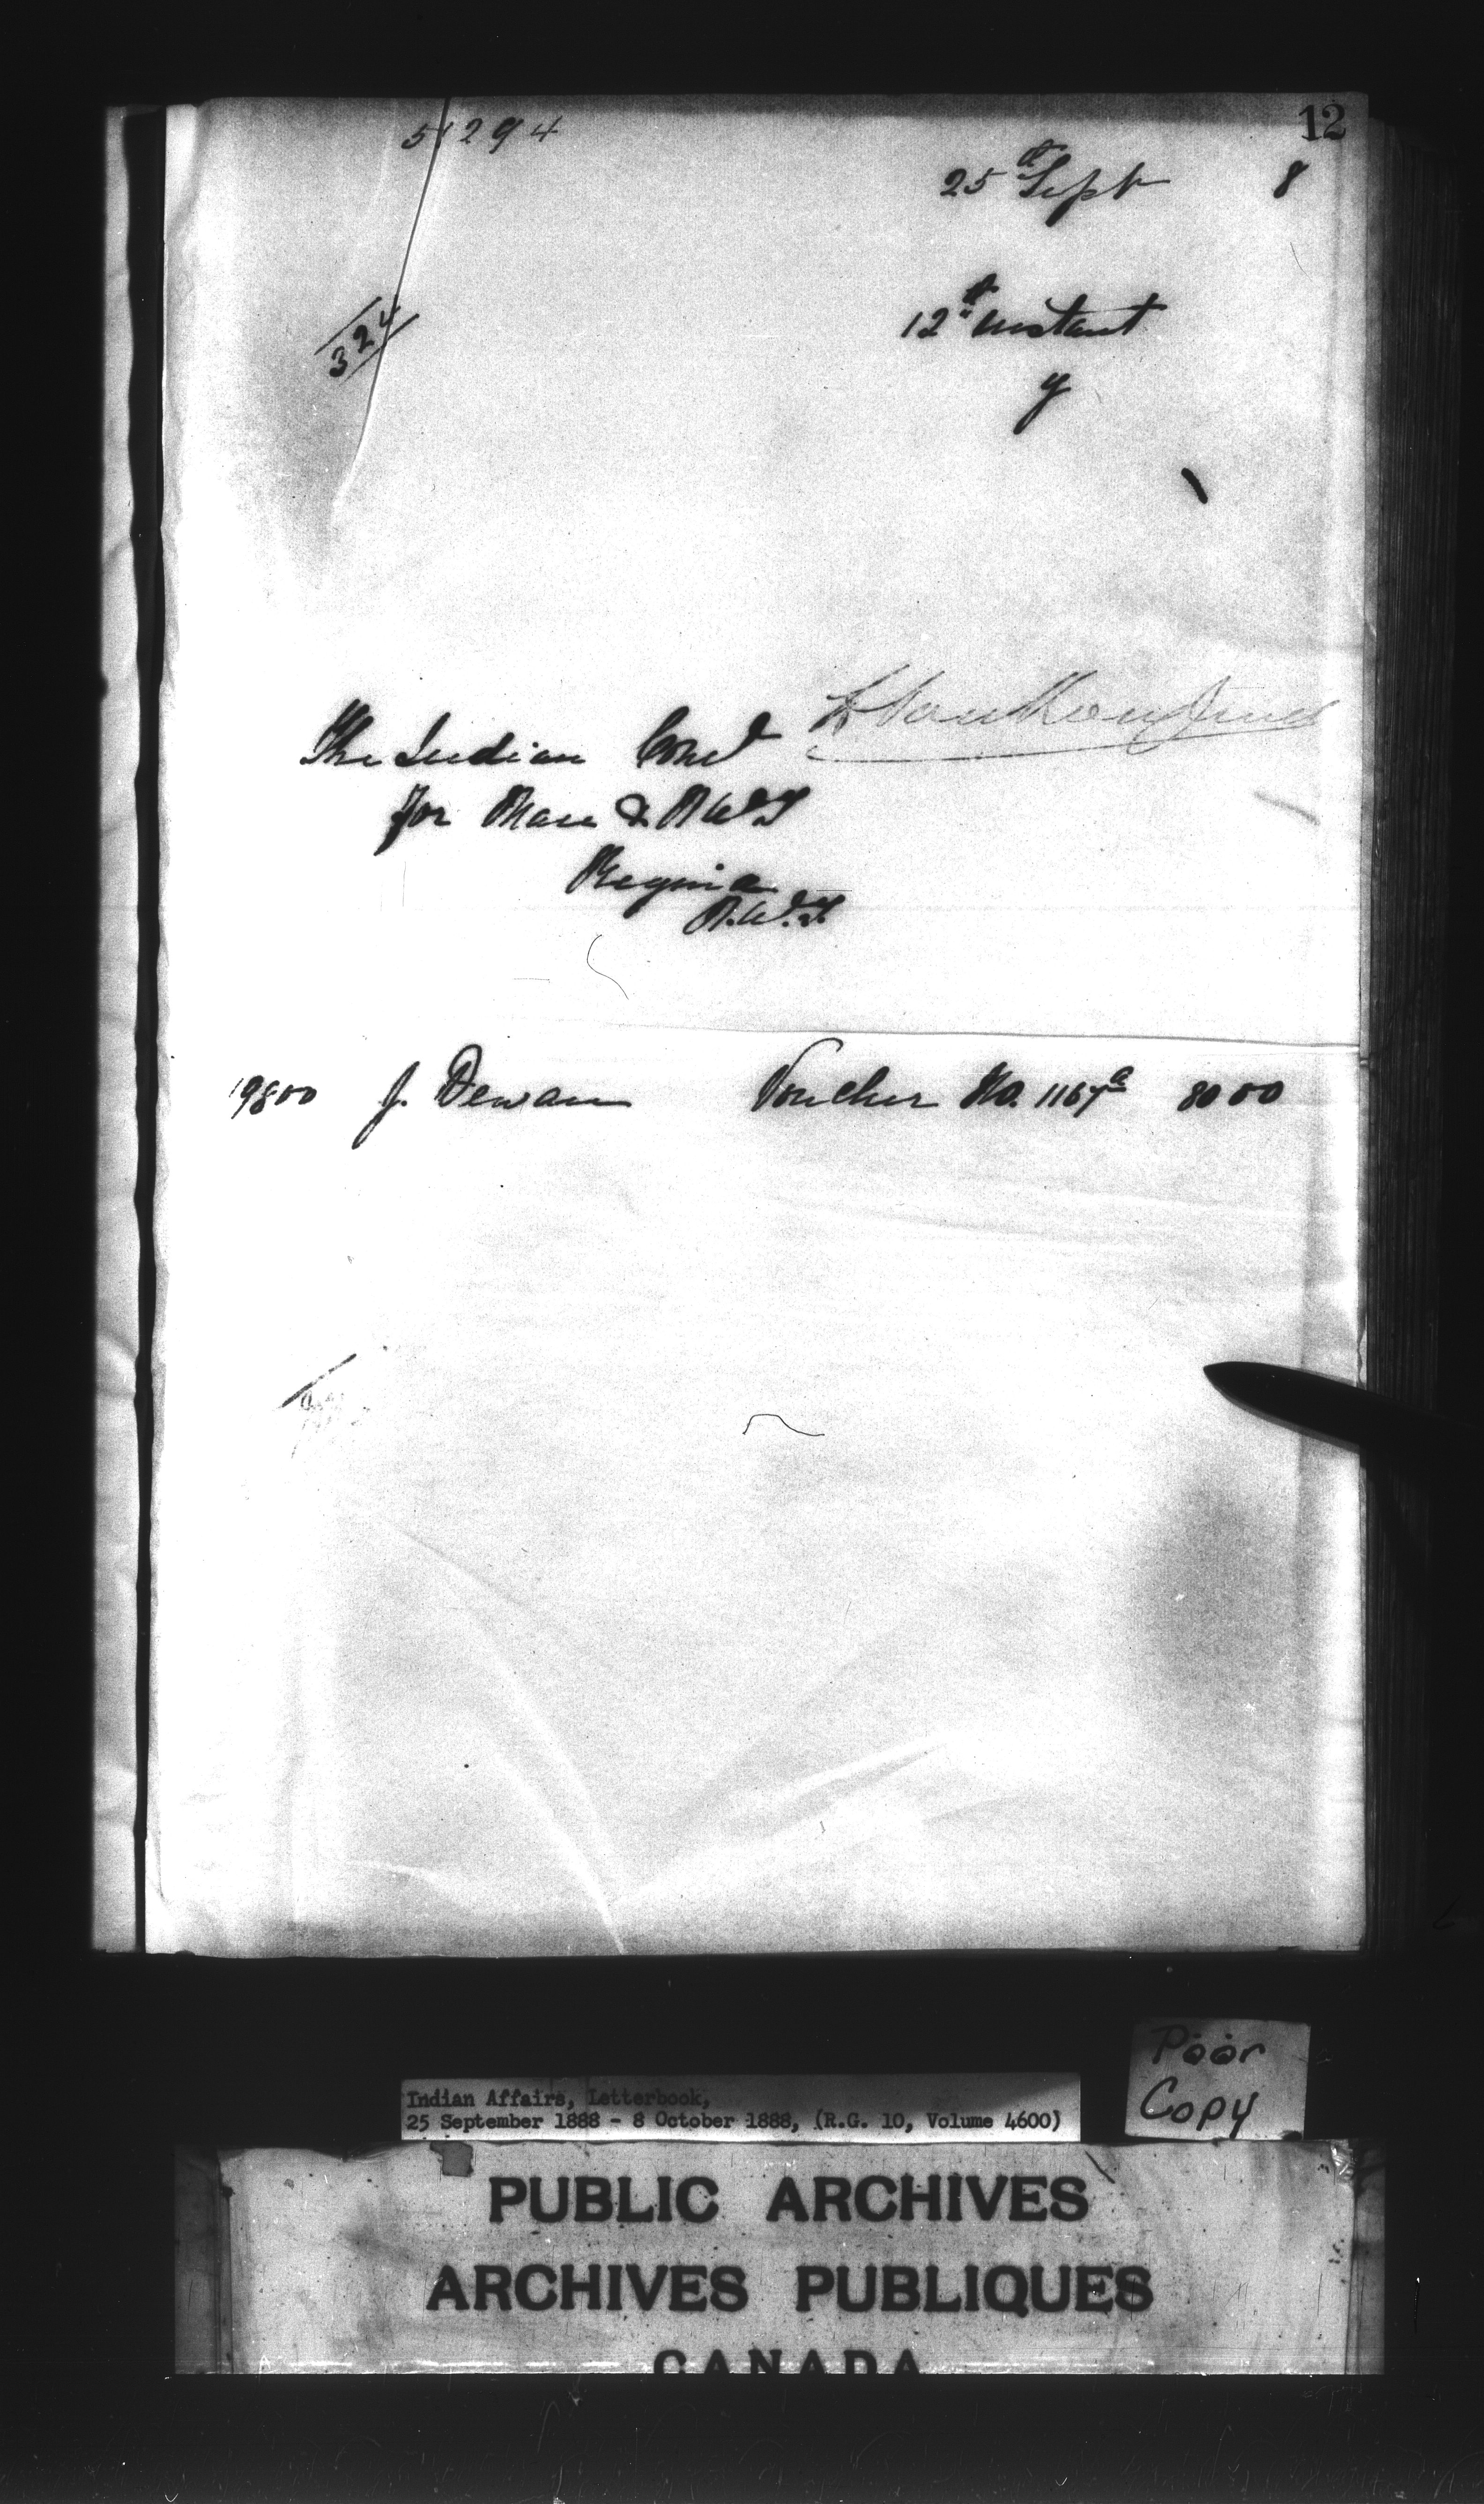 12
51294
25th Sept 8
324
12th instant
y
L Vankoughnet
The Indian Comr
for Man & N.W.T
Regina
N.W.T.
19800 J. Dewan Voucher No. 1167a 80 00
Poor
Copy
Indian Affairs, Letterbook,
25 September 1888 - 8 October 1888, (R.G. 10, Volume 4600)
PUBLIC ARCHIVES
ARCHIVES PUBLIQUES
CANADA